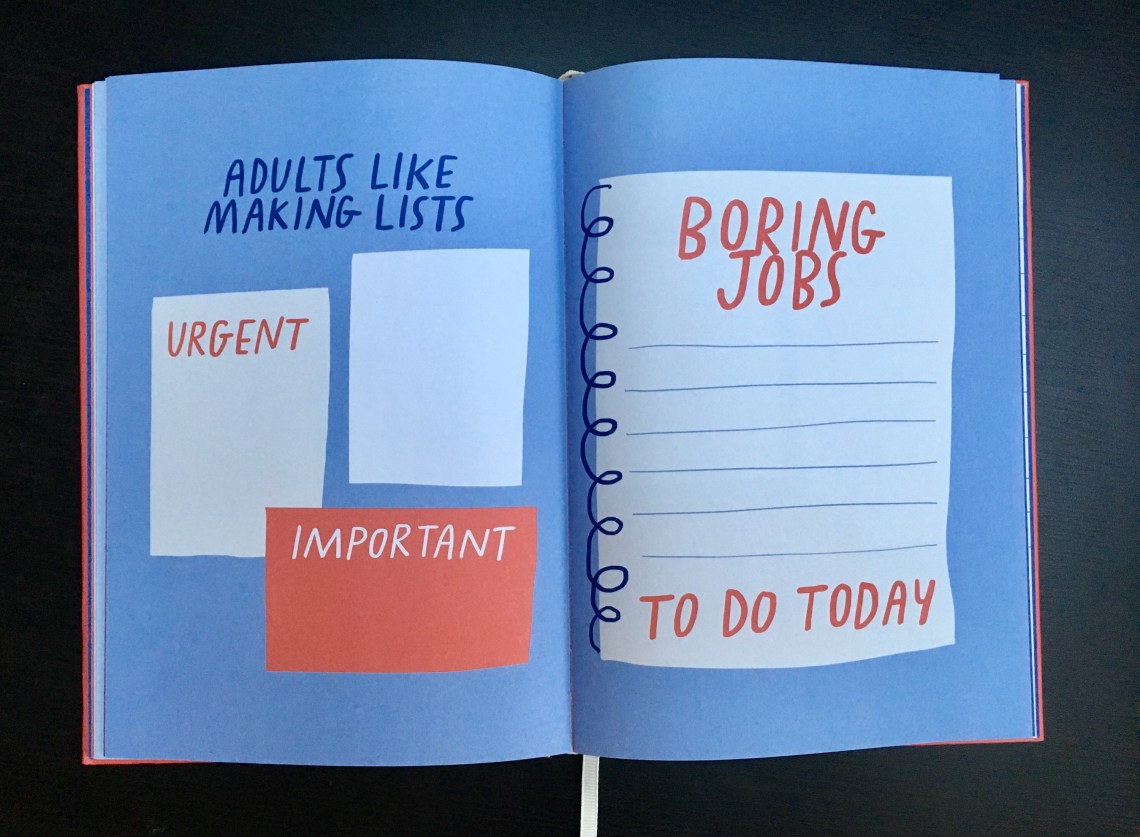 ADULTS LIKE
MAKING LISTS
URGENT
IMPORTANT
BORING
JOBS
TO DO TODAY